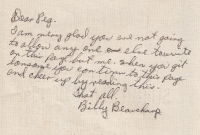 Dear Peg.
I am very glad you are not going
to allow any one else to write
on this page but me. When you get
lonesome you can turn to this page
and cheer up by reading this.
that all.
Billy Beauchamp